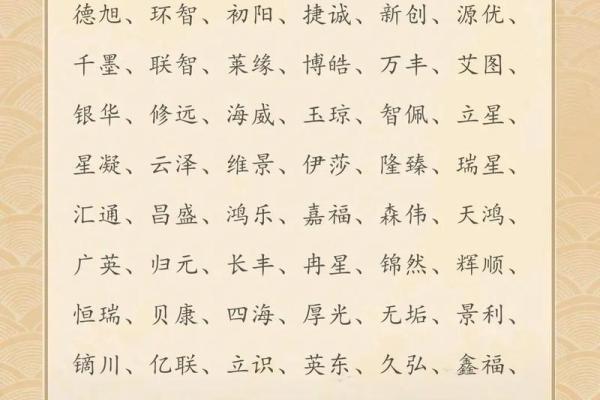 德旭、环智、初阳、捷诚、新创、源优、
千墨、联智、莱缘、博皓、万丰、艾图、
银华、修远、海威、玉琼、智佩、立星、
星凝、云泽、维景、伊莎、隆臻、瑞星、
汇通、昌盛、鸿乐、嘉福、森伟、天鸿、
广英、归元、长丰、冉星、锦然、辉顺、
恒瑞、贝康、四海、厚光、无垢、景利、
镝川、亿联、立识、英东、久弘、鑫福、